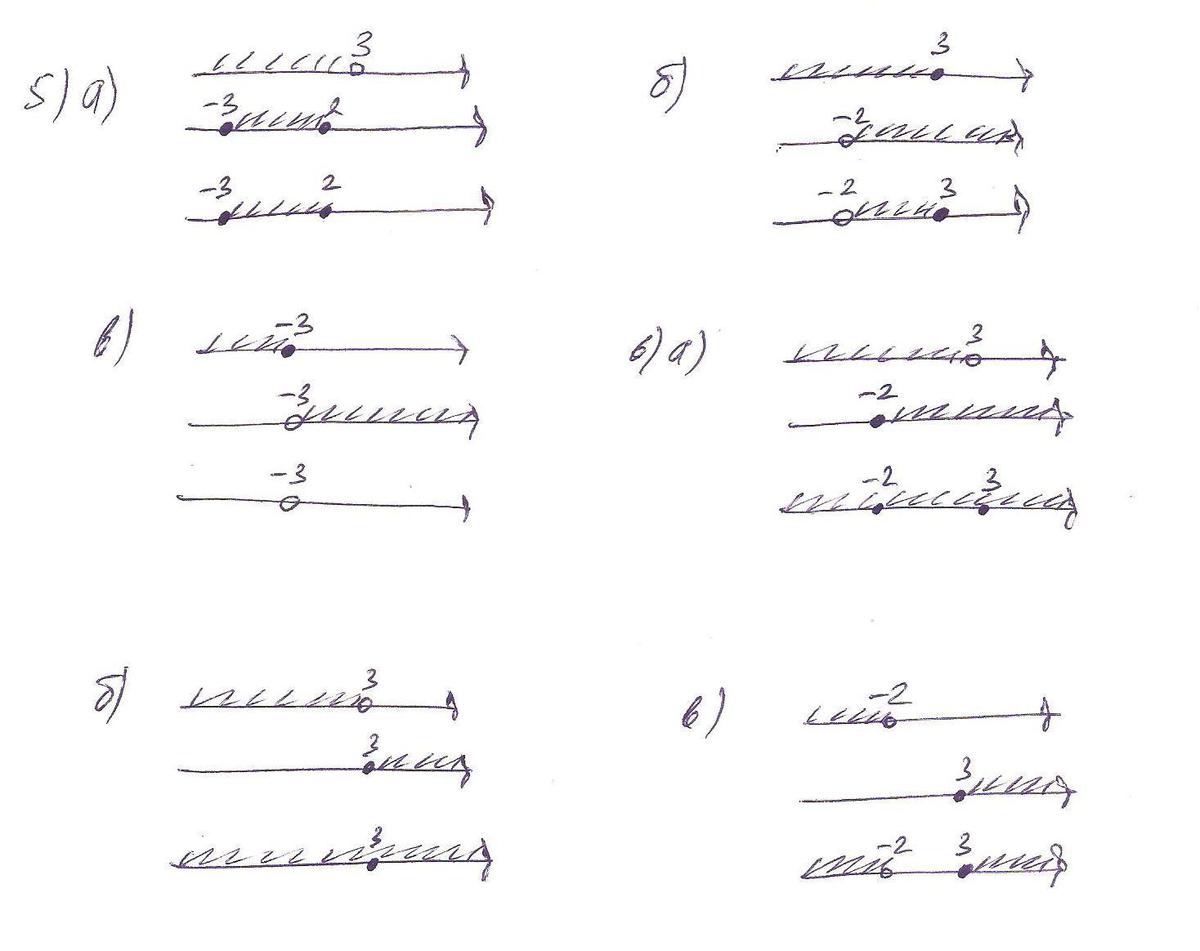 5) а)
3
-3 2
-3 2
б)
3
-2
-2 3
в)
-3
-3
-3
6) а)
3
-2
-2 3
б)
3
3
3
в)
-2
3
-2 3